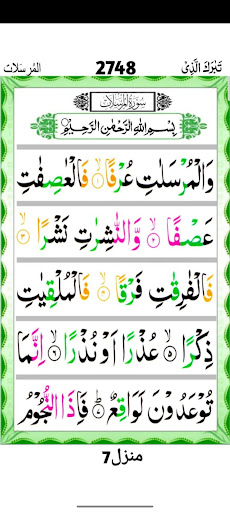 تَبٰرَكَ الَّذِىْ 2748 المُرسَلات
سُوْرَةُ الْمُرْسَلَاتِ
بِسْمِ اللهِ الرَّحْمٰنِ الرَّحِيْمِ
وَالْمُرْسَلٰتِ عُرْفًا ۙ﴿۱﴾ فَالْعٰصِفٰتِ
عَصْفًا ۙ﴿۲﴾ وَّالنّٰشِرٰتِ نَشْرًا ۙ﴿۳﴾
فَالْفٰرِقٰتِ فَرْقًا ۙ﴿۴﴾ فَالْمُلْقِيٰتِ
ذِكْرًا ۙ﴿۵﴾ عُذْرًا اَوْ نُذْرًا ۙ﴿۶﴾ اِنَّمَا
تُوْعَدُوْنَ لَوَاقِعٌ ؕ﴿۷﴾ فَاِذَا النُّجُوْمُ
منزل7